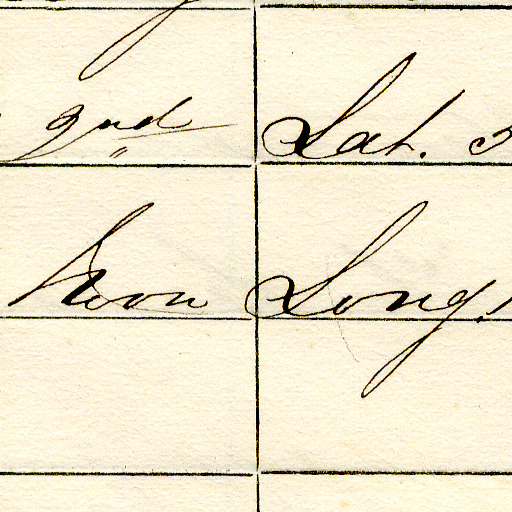 2nd Lat. 3
Noon Long.